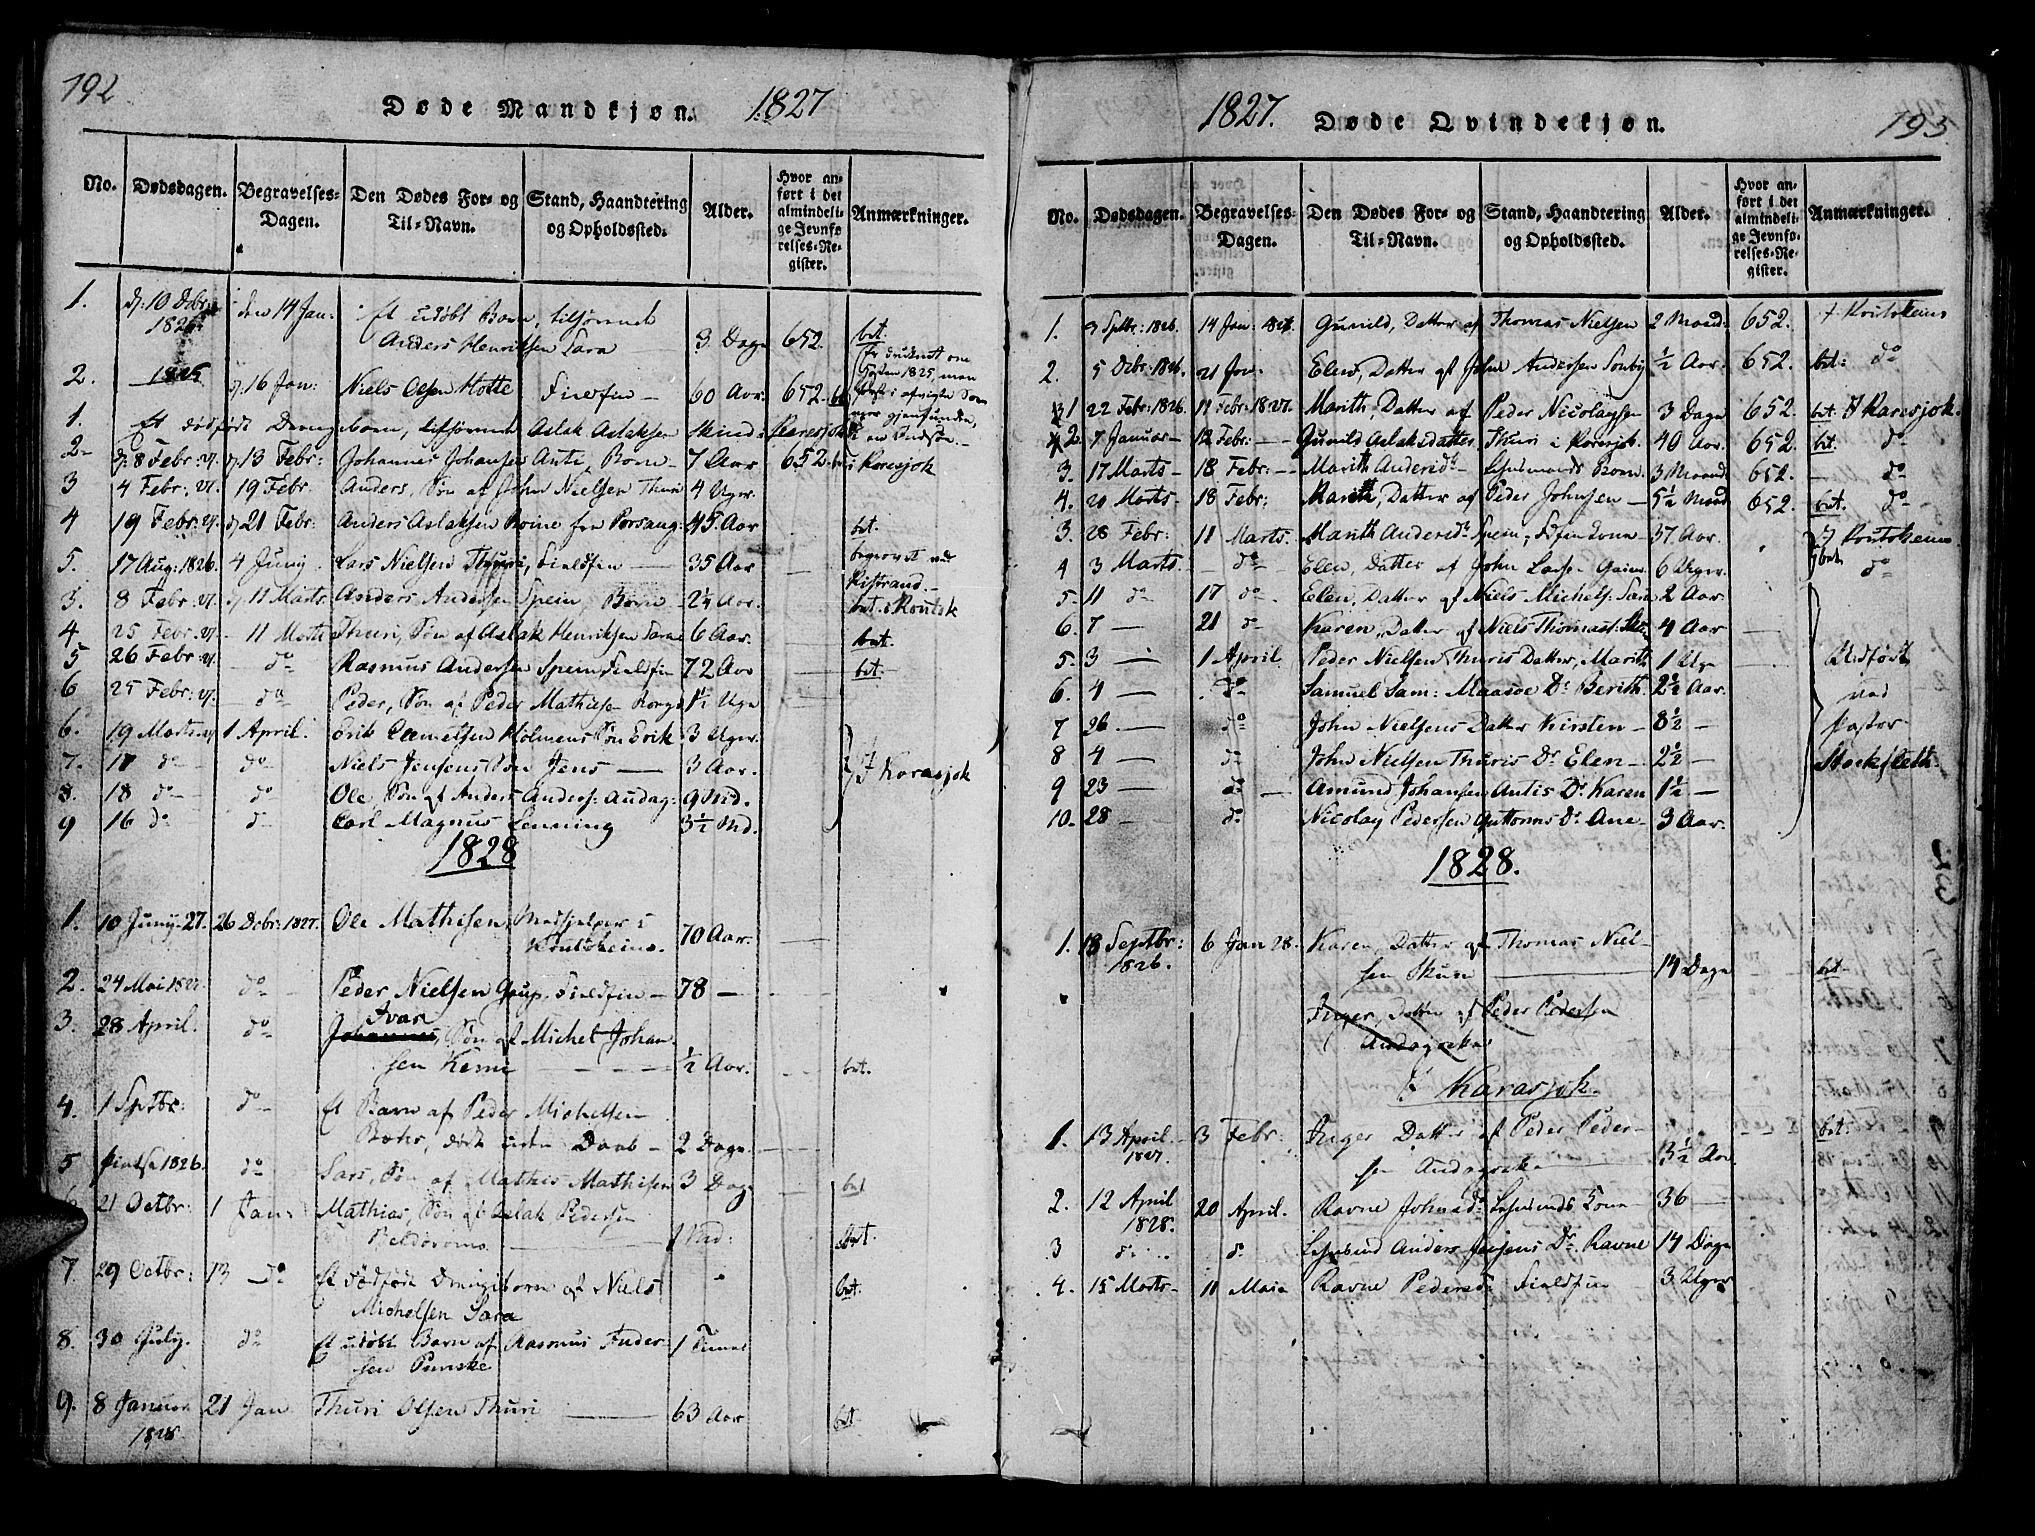 192
Døde Mandkjøn. 1827
No. Dødsdagen. Begravelses-Dagen. Den Dødes For- og Til-Navn. Stand, Haandtering og Opholdssted. Alder. Hvor anført i det almindelige Jevnførelses-Register. Anmærkninger.
1. d: 10 Dcbr: 1826 den 14 Jan: Et udøbt Barn, tilhørende
Anders Henriksen Sara 3 Dage 652. bet.
2. 1825 d: 16 Jan: Niels Olsen Hotte Fieldfin — 60 Aar. 652.
1. Et dødfødt Drengebarn, tilhørende Aslak Aslaksen
2- d: 8 Febr: 27. d: 13 Febr: Johannes Johansen Anti, Barn — 7 Aar 652. i Karasjok
3 4 Febr: 27. 19 Febr. Anders, Søn af John Nielsen Thuri 4 Uger.
4 19 Febr. 27. d: 21 Febr: Anders Aslaksen Roine fra Porsang. 45 Aar bet.
5. 17 Aug: 1826. 4 Juny Lars Nielsen Thuri, Fieldfin — 35 Aar begravet ved
Kistrand. —
3. 8 Febr. 27. d: 11 Marts Anders Andersen Spein, Barn — 2¼ Aar. bet. i Koutok
4. 25 Febr. 27. 11 Marts Thuri, Søn af Aslak Henriksen Sara 6 Aar. bet.
5 26 Febr. 27. do Rasmus Andersen Spein Fieldfin 72 Aar bet.
6 25 Febr: 27. do Peder, Søn af Peder Mathisen 1½ Uge
6. 19 Marts 27. 1 April. Erik Samuelsen Holmens Søn Erik 3 Uger.
7. 17 do do Niels Jensens Søn Jens — 3 Aar. I Karasjok
8. 18 do do Ole, Søn af Anders Anders: Audag: 9 Md.
9 16 do do Carl Magnus Lenning 3½ Md.
1828
1. 10 Juny 27. 26 Dcbr: 1827. Ole Mathisen, Medhjelper i
Koutokeino. 70 Aar.
2. 24 Mai 1827 do Peder Nielsen Gaup. Fieldfin — 78 —
3. 28 April. do Ivar
Johannes, Søn af Michel Johan-
sen Kemi ½ Aar. bet.
4. 1 Septbr: do Et Barn af Peder Michelsen
Bæhr, dødt uden Daab — 2 Dage.
5 1826. do Lars, Søn af Mathis Mathisen 3 Dage bet
21 Octbr: 1 Jan: Mathias, Søn af Aslak Pedersen
1 Md: bet.
7. 29 Octbr: 13 do Et dødfødt Drengebarn af Niels
Michelsen Sara bet.
8. 30 July. do Et udøbt Barn af Rasmus Ander-
sen Punske 1 Time
9. 8 Januar 1828. 21 Jan Thuri Olsen Thuri — 63 Aar bet
1827. Døde Qvindekjøn. 193
No. Dødsdagen. Begravelses-Dagen. Den Dødes For- og Til-Navn. Stand, Haandtering og Opholdssted. Alder. Hvor anført i det almindelige Jevnførelses-Register. Anmærkninger.
1. 9 Sptbr: 1826. 14 Jan: 1827. Gunild, Datter af Thomas Nielsen 2 Maand: 652. I Koutokeino
2. 5 Dcbr: 1826. 21 Jan: Elen, Datter af John Andersen Sonby ½ Aar. 652. bet: do
1 22 Febr: 1826. 11 Febr: 1827. Marith, Datter af Peder Nicolaysen 3 Dage 652. bet. I Karasjok.
2. 7 Januar — 12 Febr: — Gunild Aslaksdatter Thuri i Karasjok. 40 Aar. 652. bet do
3. 17 Marts — 18 Febr: — Marith Andersd: — Lensmands Barn. 3 Maand: 652. — do
4. 20 Marts — 18 Febr: Marith, Datter af Peder Johnsen — 5½ Maand 652. bet. do
3. 28 Febr: 11 Marts. Marith Andersd: Spein, Fdfin Kone — 37 Aar. I Koutokeino
4 3 Marts. do Elen, Datter af John Lasse: Gaino 6 Uger. bet. do
5. 11 do 17 do Elen, Datter af Niels Michels: Sara 2 Aar
6. 7 — 21 do Karen, Datter af Niels Thomas: 4 Aar
5. 3 — 1 April Peder Nielsen Thuris Datter, Marith 1 Uge Udført
6. 4 — do Samuel Sam: Maasoe Dr Berith 2½ Aar. ved
7 26 — do John Nielsens Datter Kirsten — 8½ — Pastor
8 4 — do John Nielsen Thuris Dr Elen — 2½ — Stockfleth.
9 23 — do Amund Johansen Antis Dr Karen 1½ —
10. 28 do Nicolay Pedersen Guttorms Dr Ane — 3 Aar.
1828.
1. 18 Septbr: 1826. 6 Jan 28. Karen, Datter af Thomas Niel-
sen Skum 14 Dage bet.
Inger, Datter af Peder Pedersen
Audagoeka
I Karasjok.
1. 13 April 1827. 3 Febr: Inger Datter af Peder Peder-
sen Audagoeka 3½ Aar bet:
2. 12 April 1828. 20 April. Ravne Johnsd: Lensmds Kone 36 —
3 do do Lensmd Anders Jensens Dr. Ravne 14 Dage
4. 15 Marts 11 Maie Ravne Pedersd: Fieldfin 3 Uger